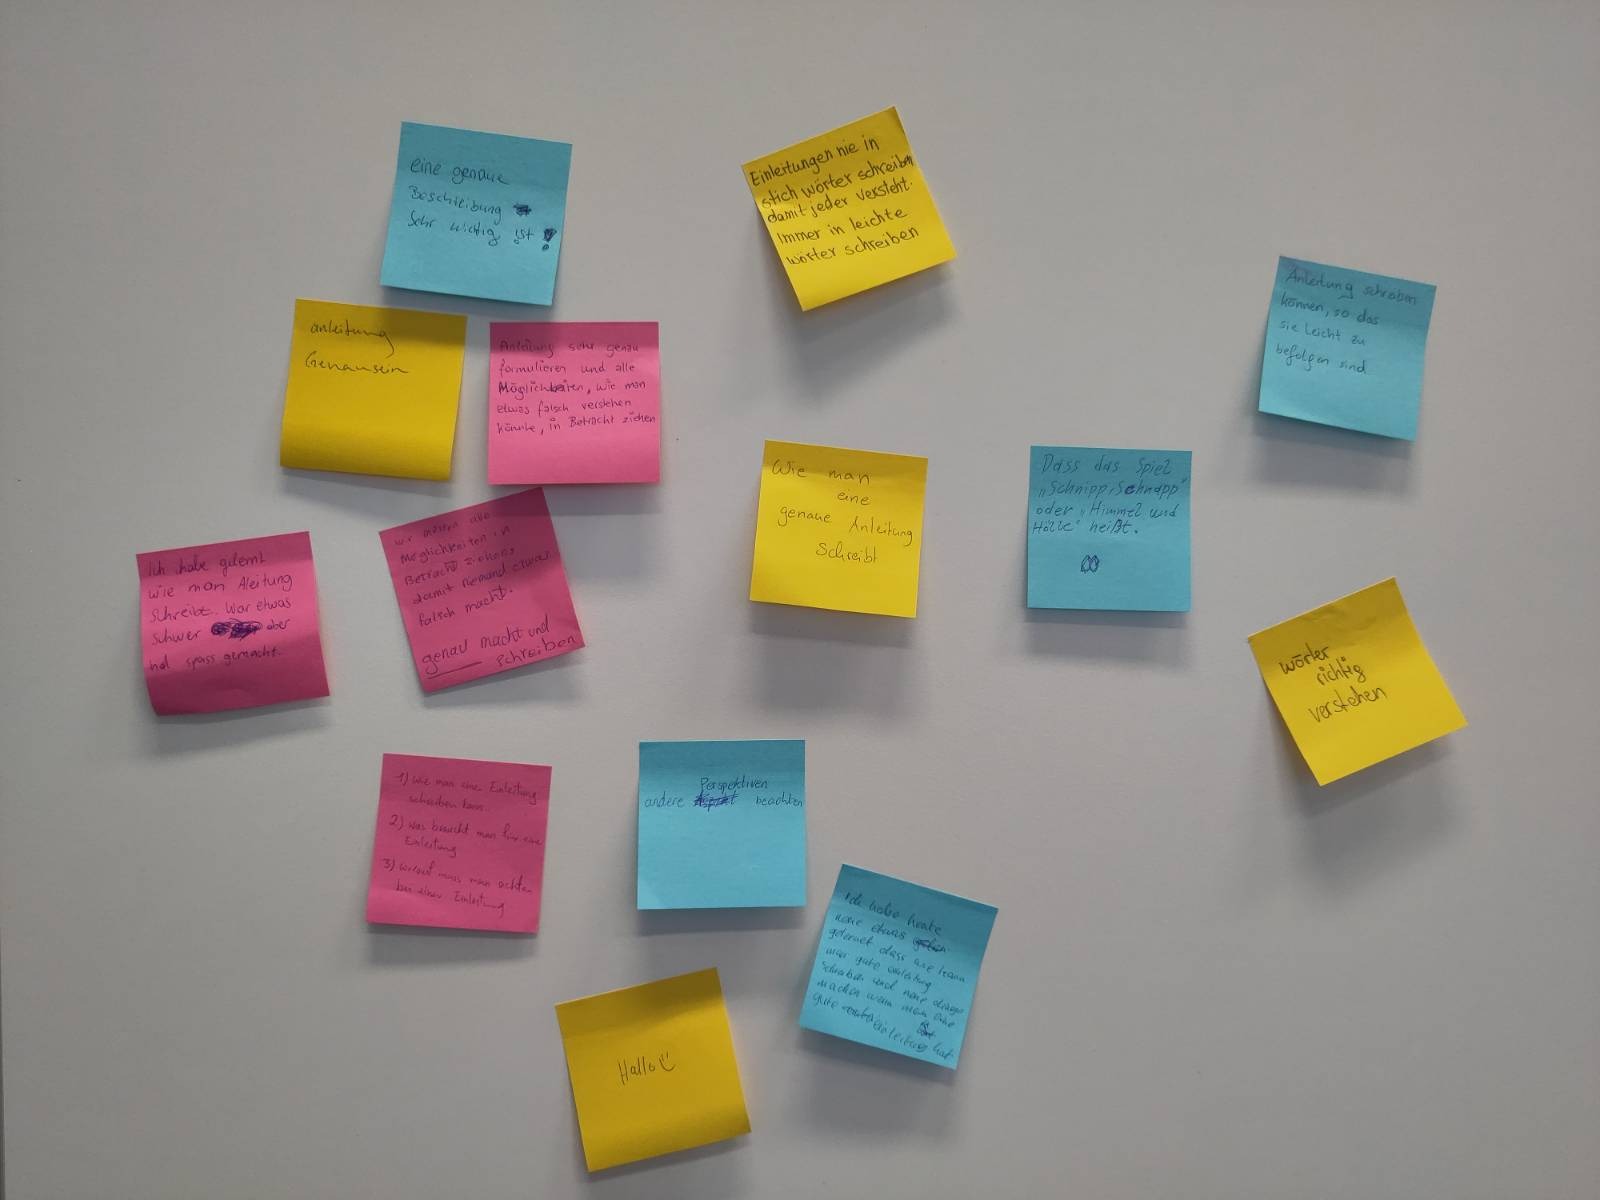 eine genaue
Beschreibung
Sehr wichtig ist !
Einleitungen nie in
stich wörter schreiben
damit jeder versteht.
Immer in leichte
wörter schreiben
Anleitung schreiben
können, so das
sie leicht zu
befolgen sind
anleitung
Genausein
Anleitung sehr genau
formulieren und alle
Möglichkeiten, wie man
etwas falsch verstehen
könnte, in Betracht ziehen
Wie man
eine
genaue Anleitung
Schreibt
Dass das Spiel
„Schnipp, Schnapp"
oder „Himmel und
Hölle" heißt.
Ich habe gelernt
wie man Aleitung
Schreibt. War etwas
schwer aber
hat spass gemacht.
wir müssen alle
Möglichkeiten in
Betracht ziehens
damit niemand etwas
falsch macht.
genau macht und
schreiben
wörter
richtig
verstehen
1) wie man eine Einleitung
schreiben kann.
2) was braucht man für eine
Einleitung
3) worauf muss man achten
bei einer Einleitung
Perspektiven
andere beachten
Ich habe heute
neue etwas
gelernt dass wie kann
man gute einleitung
schreiben und neue dinge
machen wenn man eine
gute
einleitung hat
Hallo